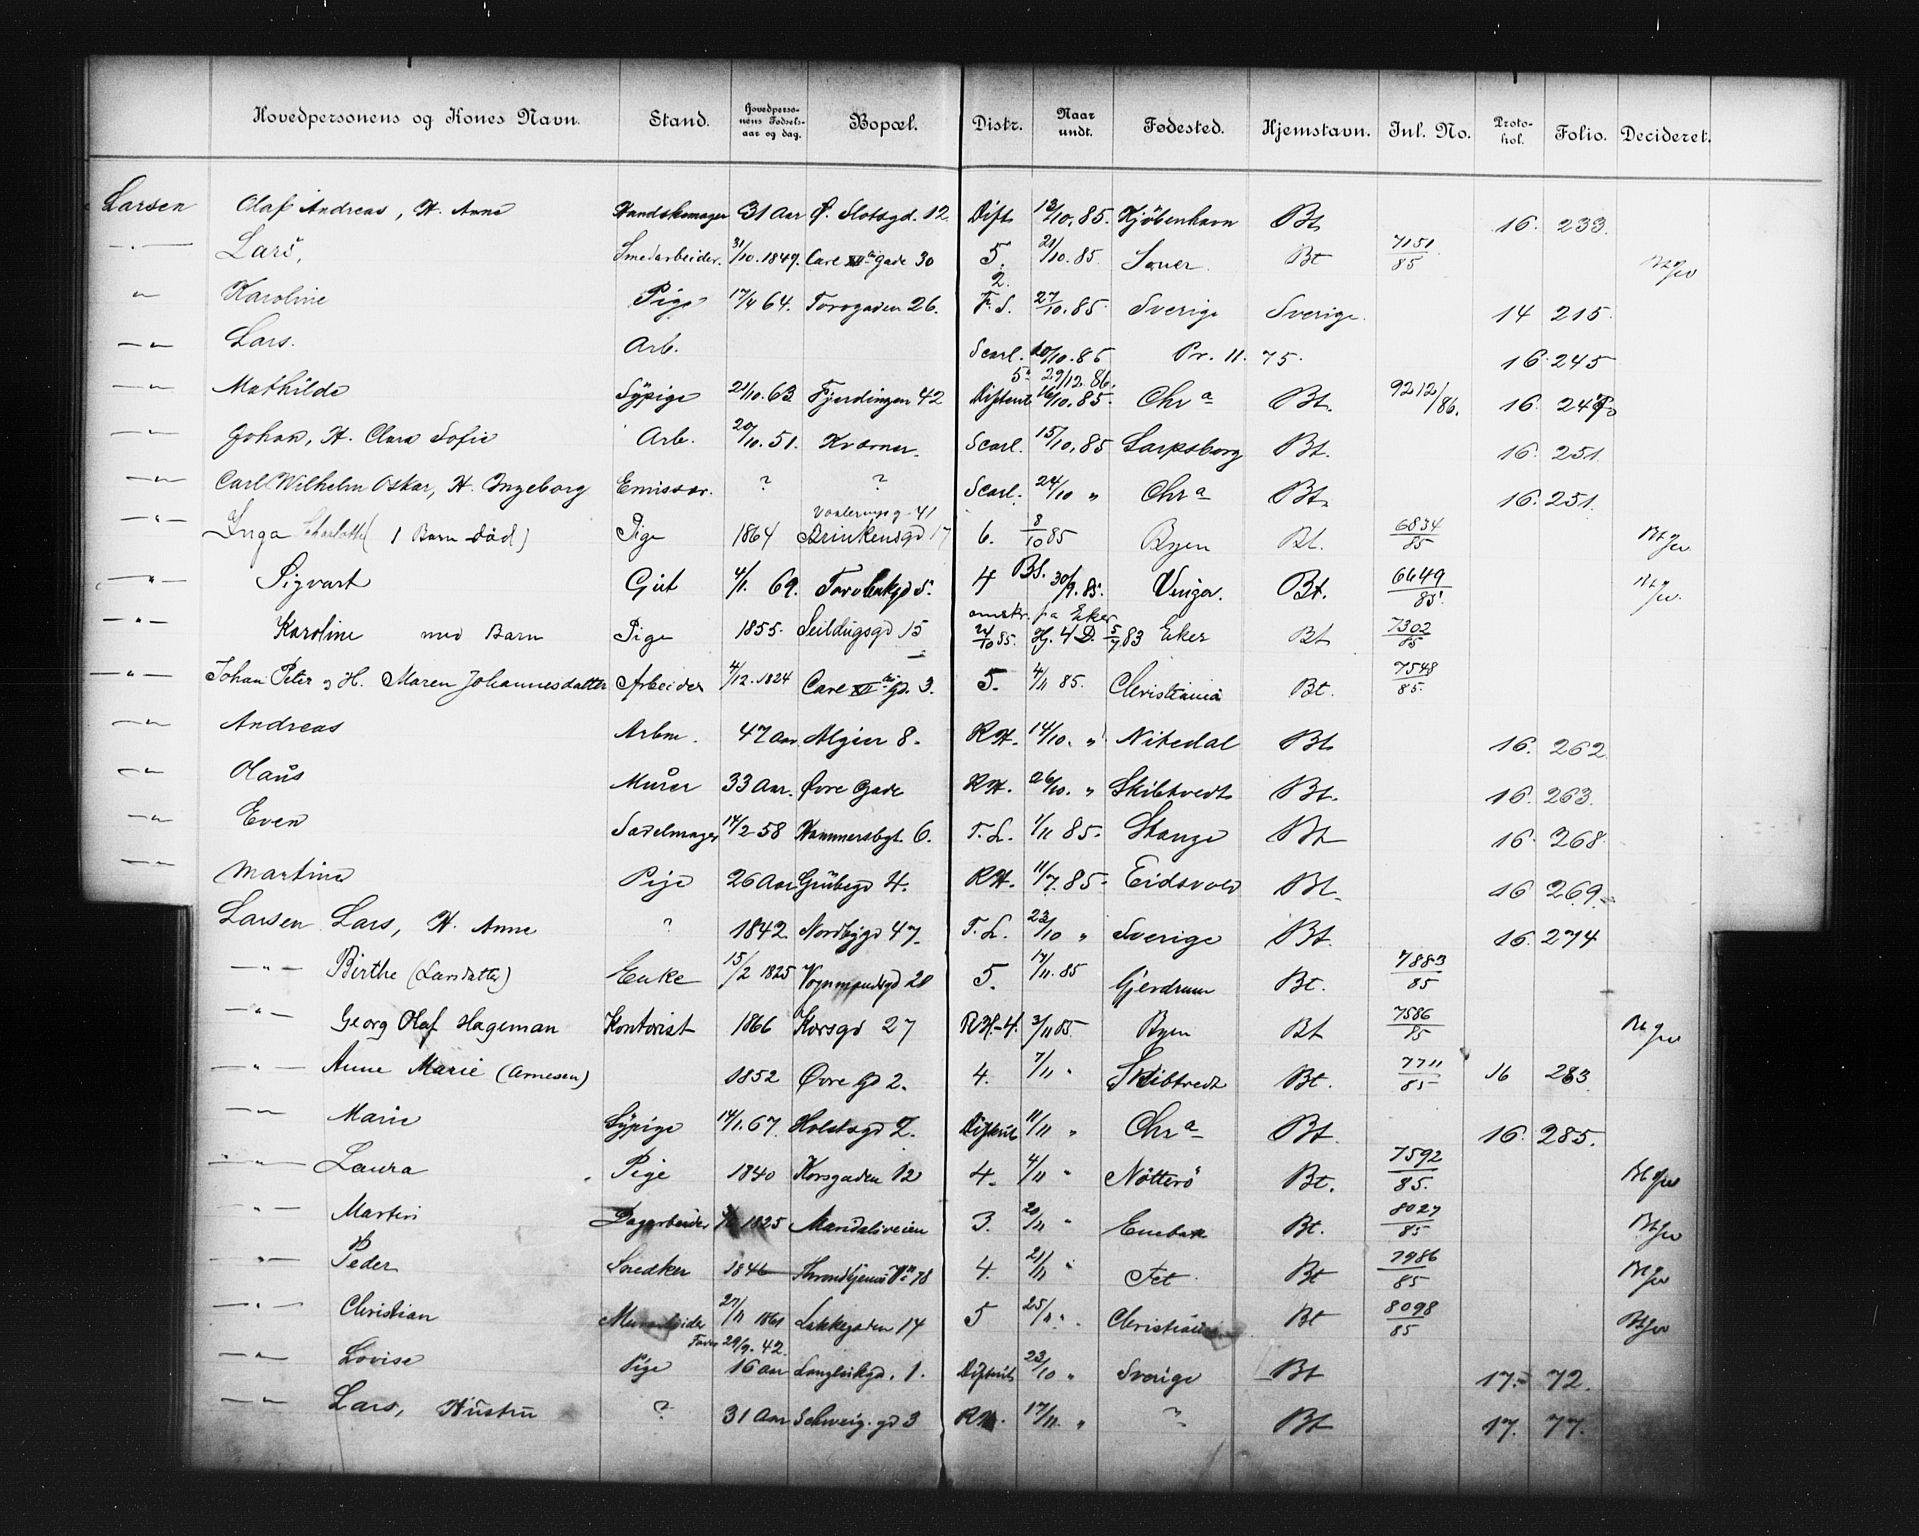 Hovedpersonens og Kones Navn. Stand. Hovedpersonens Fødselsaar og dag. Bopæl. Distr. Naar undt. Fødested. Hjemstavn. Inl. No. Protokol. Folio. Decideret.
Larsen Olaf Andreas, H. Anne Handskemager 31 Aar Ø. Slotsgd. 12 Dist. 13/10. 85. Kjöbenhavn Bt 16. 233.
—"— Lars, Smedarbeider. 31/10. 1849. Carl XII gade 30 5. 21/10. 85. Bt 7151/85
" Karoline Pige 17/4 64. Torvgaden 26. 2. F. S. 27/10. 85. Sverige Sverige. 14 215.
—"— Lars. Arb. Scarl. 10/10. 85 Pr. 11. 75. 16. 245
—"— Mathilde Sÿpige 21/10. 63 Fjerdingen 42 5. 29/12. 86. 16/10. 85. Chr a Bt. 9212/86. 16.
—"— Johan, H. Clara Sofie Arb. 20/10. 51. Kværner. Scarl. 15/10. 85 Sarpsborg Bt. 16. 251.
—"— Carl Wilhelm Oskar, H. Ingeborg Emissær. ? ? Scarl. 24/10 " Chr a Bt. 16. 251.
—"— Inga Charlotte (1 Barn död) Pige 1864 Vaaleringsg. 41 Brinkensgd 17 6. 8/10 85 Byen Bt. 6834/85
—"— Sigvart Gut 4/1. 69. 5. 4 Bs. 30/9. 85. Bt. 6649/85.
—"— Karoline med Barn Pige 1855. Seildugsgd 15 omskr. fra Eker 24/10 85. Hj. 4 D. 5/7 83 Eker Bt 7302/85
—"— Johan Peter og H. Maren Johannesdatter Arbeider 4/12. 1824 Carl XII gd. 3. 5. 4/11 85. Christiania Bt. 7548/85.
—"— Andreas Arbm. 47 Aar Algier 8. RH. 14/10. " Nitedal Bt 16. 262
—"— Olaüs Murer 33 Aar. Øvre Gade RH. 26/10. " Skibtvedt Bt. 16. 263.
—"— Even Sadelmager 14/2-58 Hammersbgt. 6. T. L. 1/11 85. Stange Bt 16. 268.
—"— Martine Pige 26 Aar Grübegd 4. RH. 11/7. 85. Eidsvold Bt. 16 269.
Larsen Lars, H. Anne ? 1842. Nordbygd 47. T. L. 23/10 " Sverige Bt. 16. 274
—"— Birthe (Larsdatter) Enke 15/2 1825 Vognmandsgd 20 5. 17/11. 85 Gjerdrum Bt. 7883/85
—"— Georg Olaf Hageman Kontorist 1866 Korsgd 27 RH.-4. 3/11 85 Byen Bt 7586/85
—"— Anne Marie (Arnesen) 1852 Øvre gd 2. 4. 7/11 " Skibtvedt Bt. 7711/85 16 283
—"— Marie Sÿpige 14/1. 67. Holstsgd 2. 11/11 " Chr a Bt. 16. 285.
—"— Laura Pige 1840 Korsgaden 12 4. 4/11 " Nötterö Bt. 7592/85.
—"— Martin Dagarbeider 1825 Maridalsveien 3. 20/11 " Enebak Bt. 8027/85
—"— Peder Snedker 1846 Throndhjemsv. 78 4. 21/11 " Fet Bt 7986/85
—"— Christian Murarbeider 27/11 1861 Lakkegaden 14 5 25/11 " Christiania Bt 8098/85
—"— Lovise Pige Fader 29/9. 42. 16 Aar Langleikgd. 1. 23/10 " Sverige Bt 17. 72.
—"— Lars, Hüstru ? 31 Aar Schweig. gd 3 RH. 17/11. " ? Bt 17. 77.